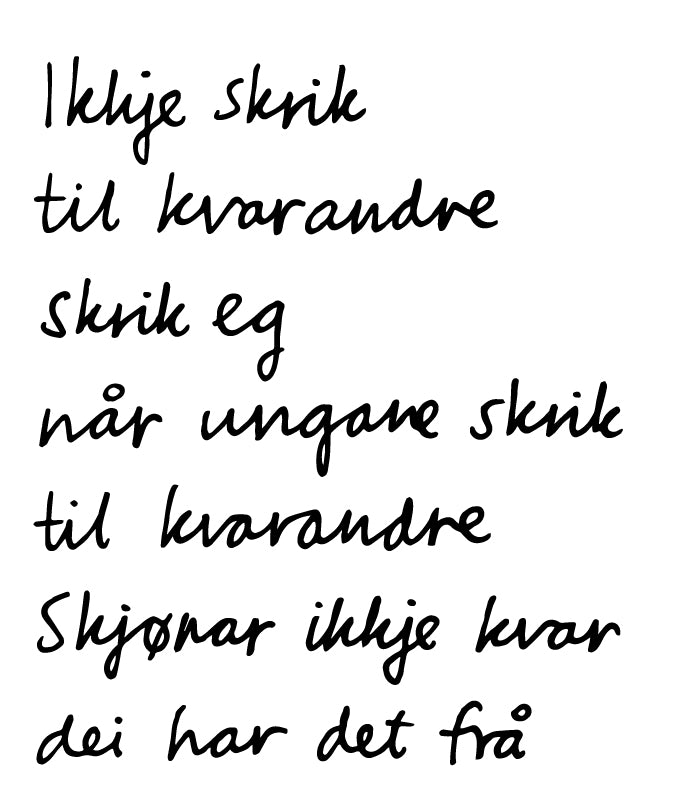 Ikkje skrik
til kvarandre
skrik eg
når ungane skrik
til kvarandre
Skjønar ikkje kvar
dei har det frå